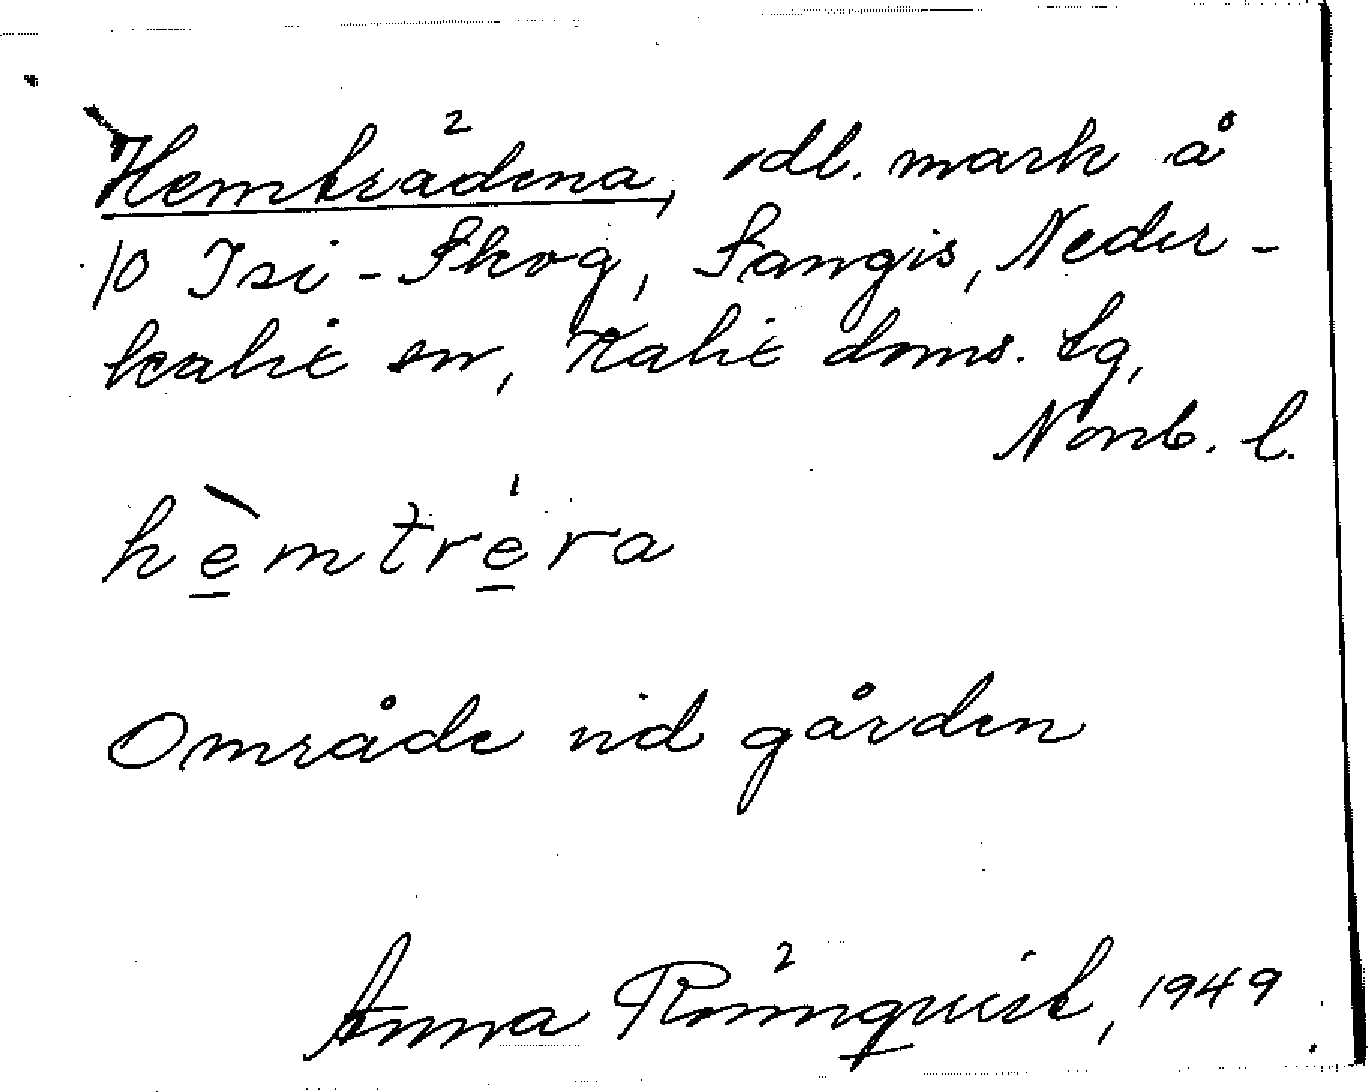 Hemträdena, odl. mark å
10 Isi-Skog, Sangis, Neder-
kalix sn, Kalix doms. Lg,
Norrb. l.
hèmtréra
Område vid gården
Anna Rönnqvist, 1949